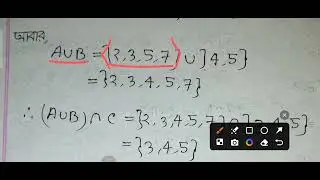 আবার,
A∪B = {2,3,5,7} ∪ {4,5}
= {2,3,4,5,7}
∴ (A∪B) ∩ C = {2,3,4,5,7} 5}
= {3,4,5}